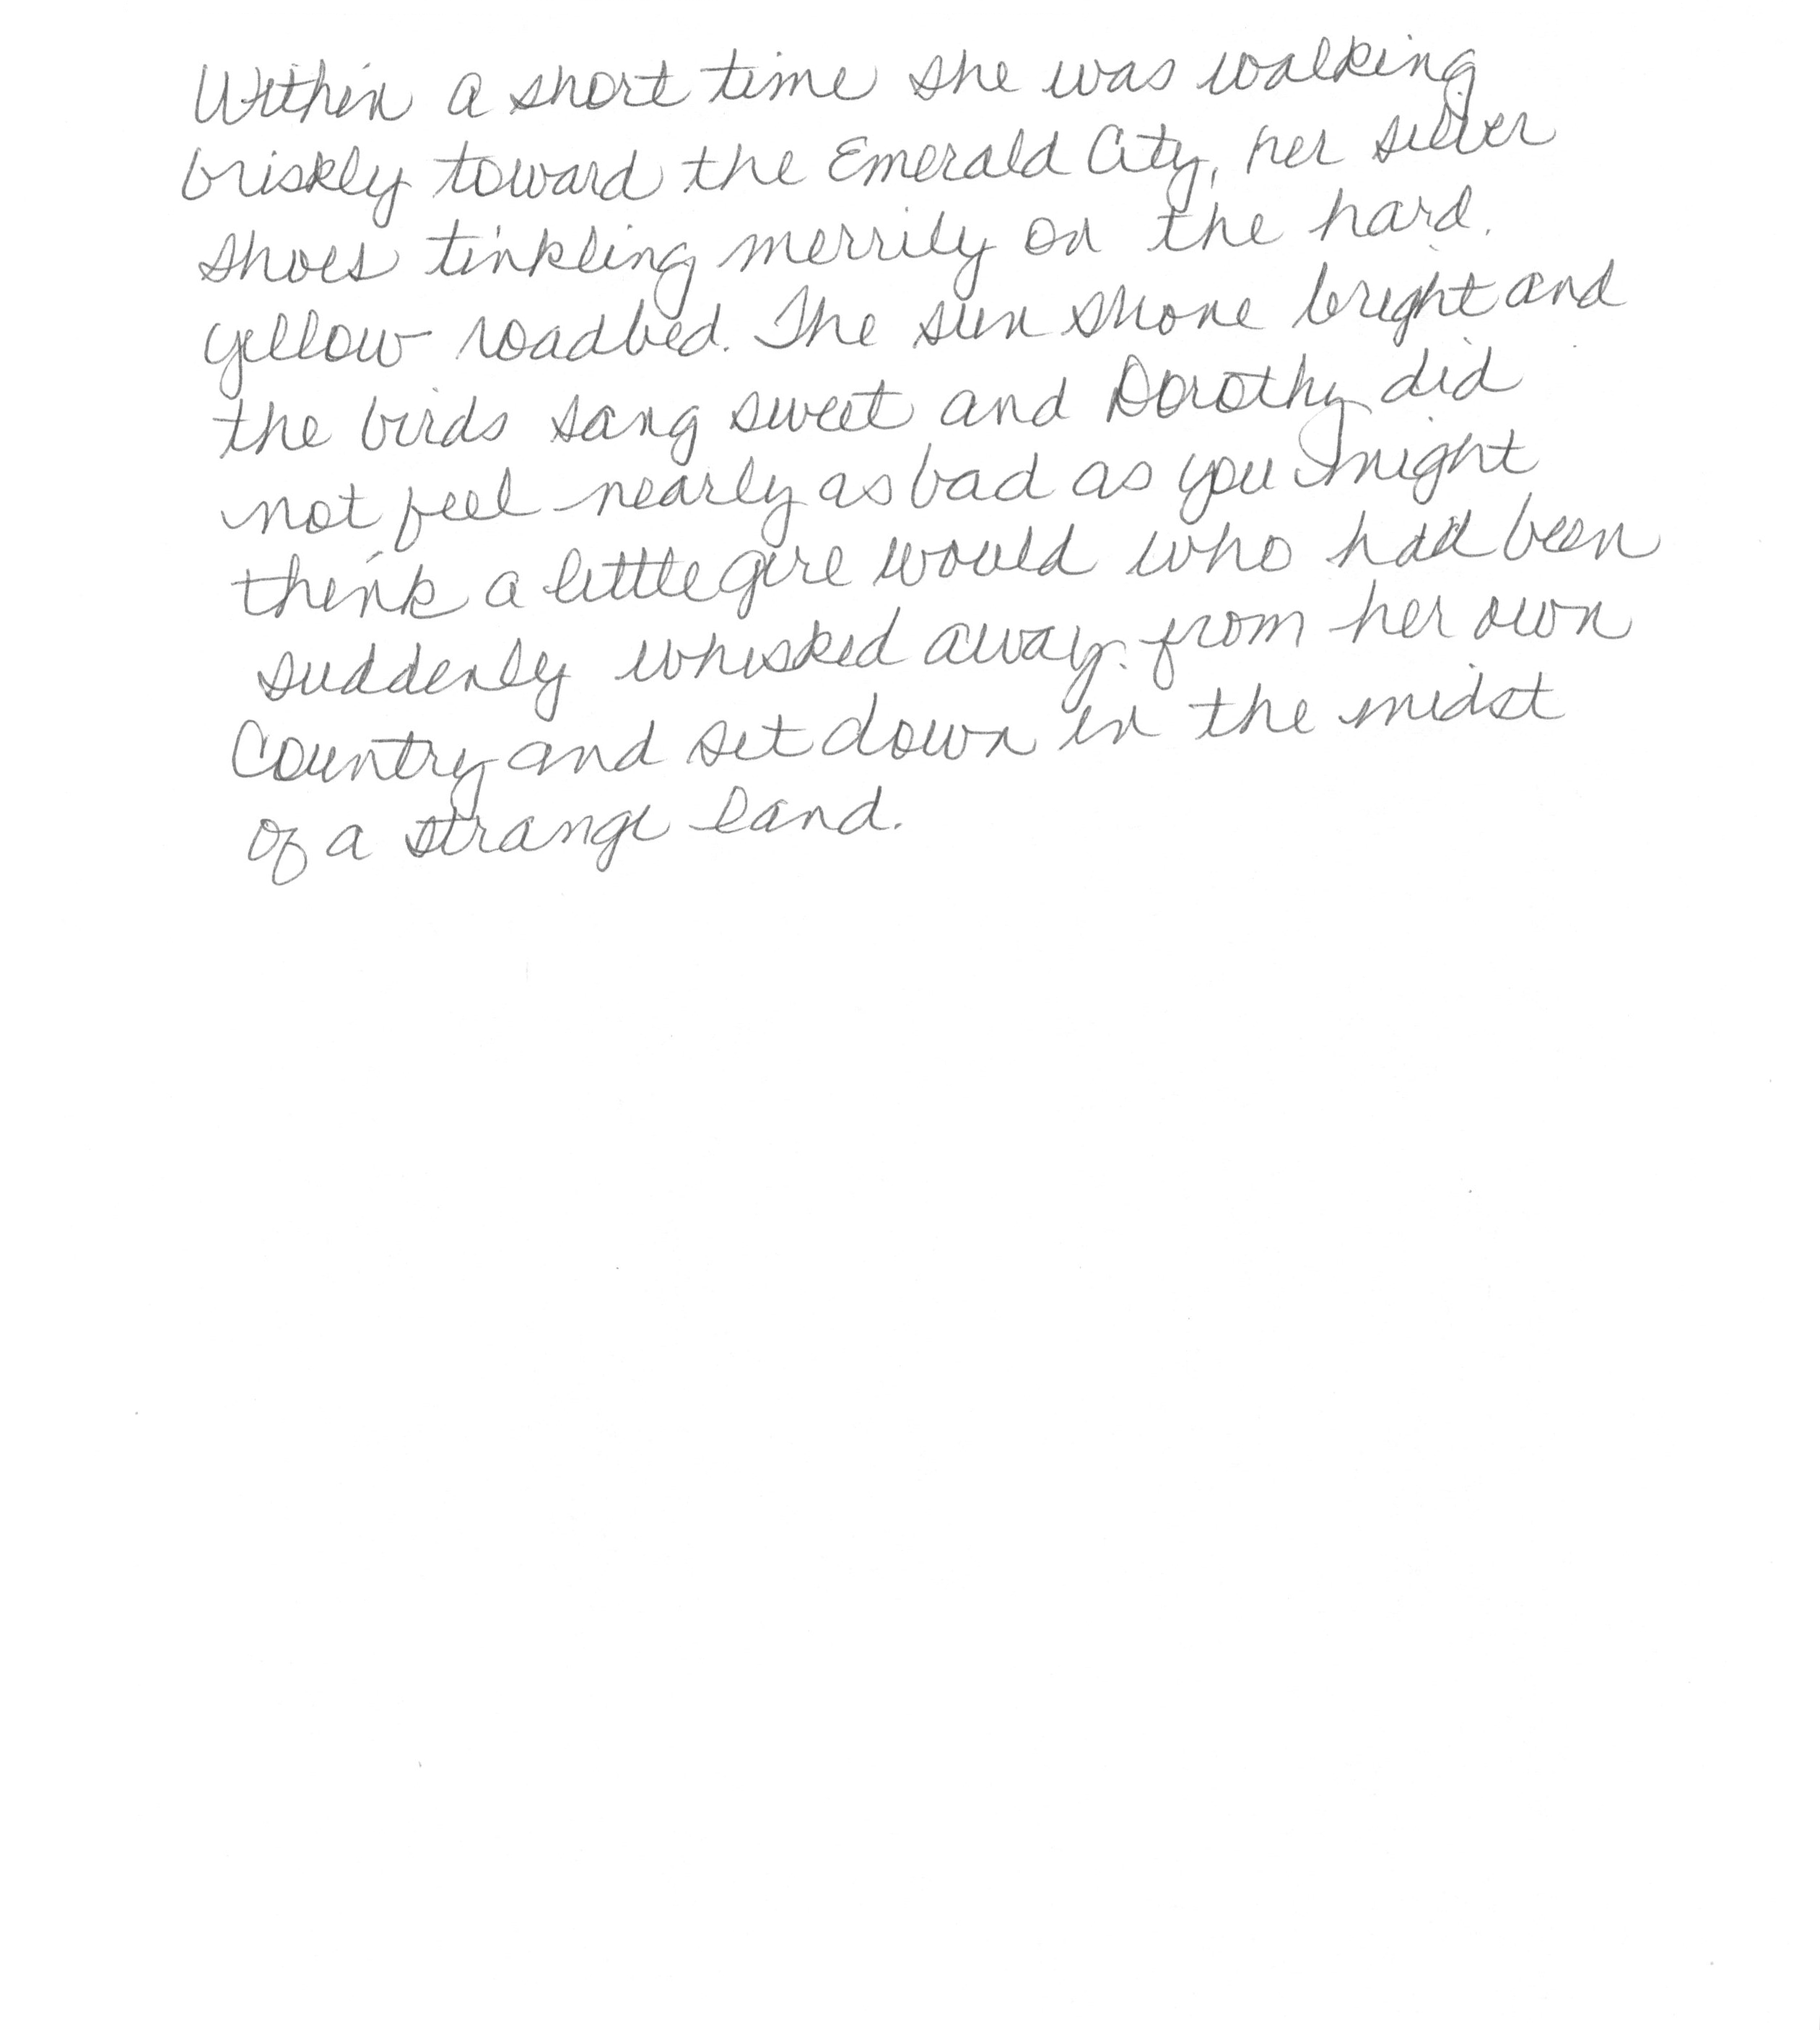 Within a short time she was walking
briskly toward the Emerald City, her silver
shoes tinkling merrily on the hard,
yellow roadbed. The sun shone bright and
the birds sang sweet and Dorothy did
not feel nearly as bad as you might
think a little girl would who had been
suddenly whisked away from her own
Country and set down in the midst
of a strange land.